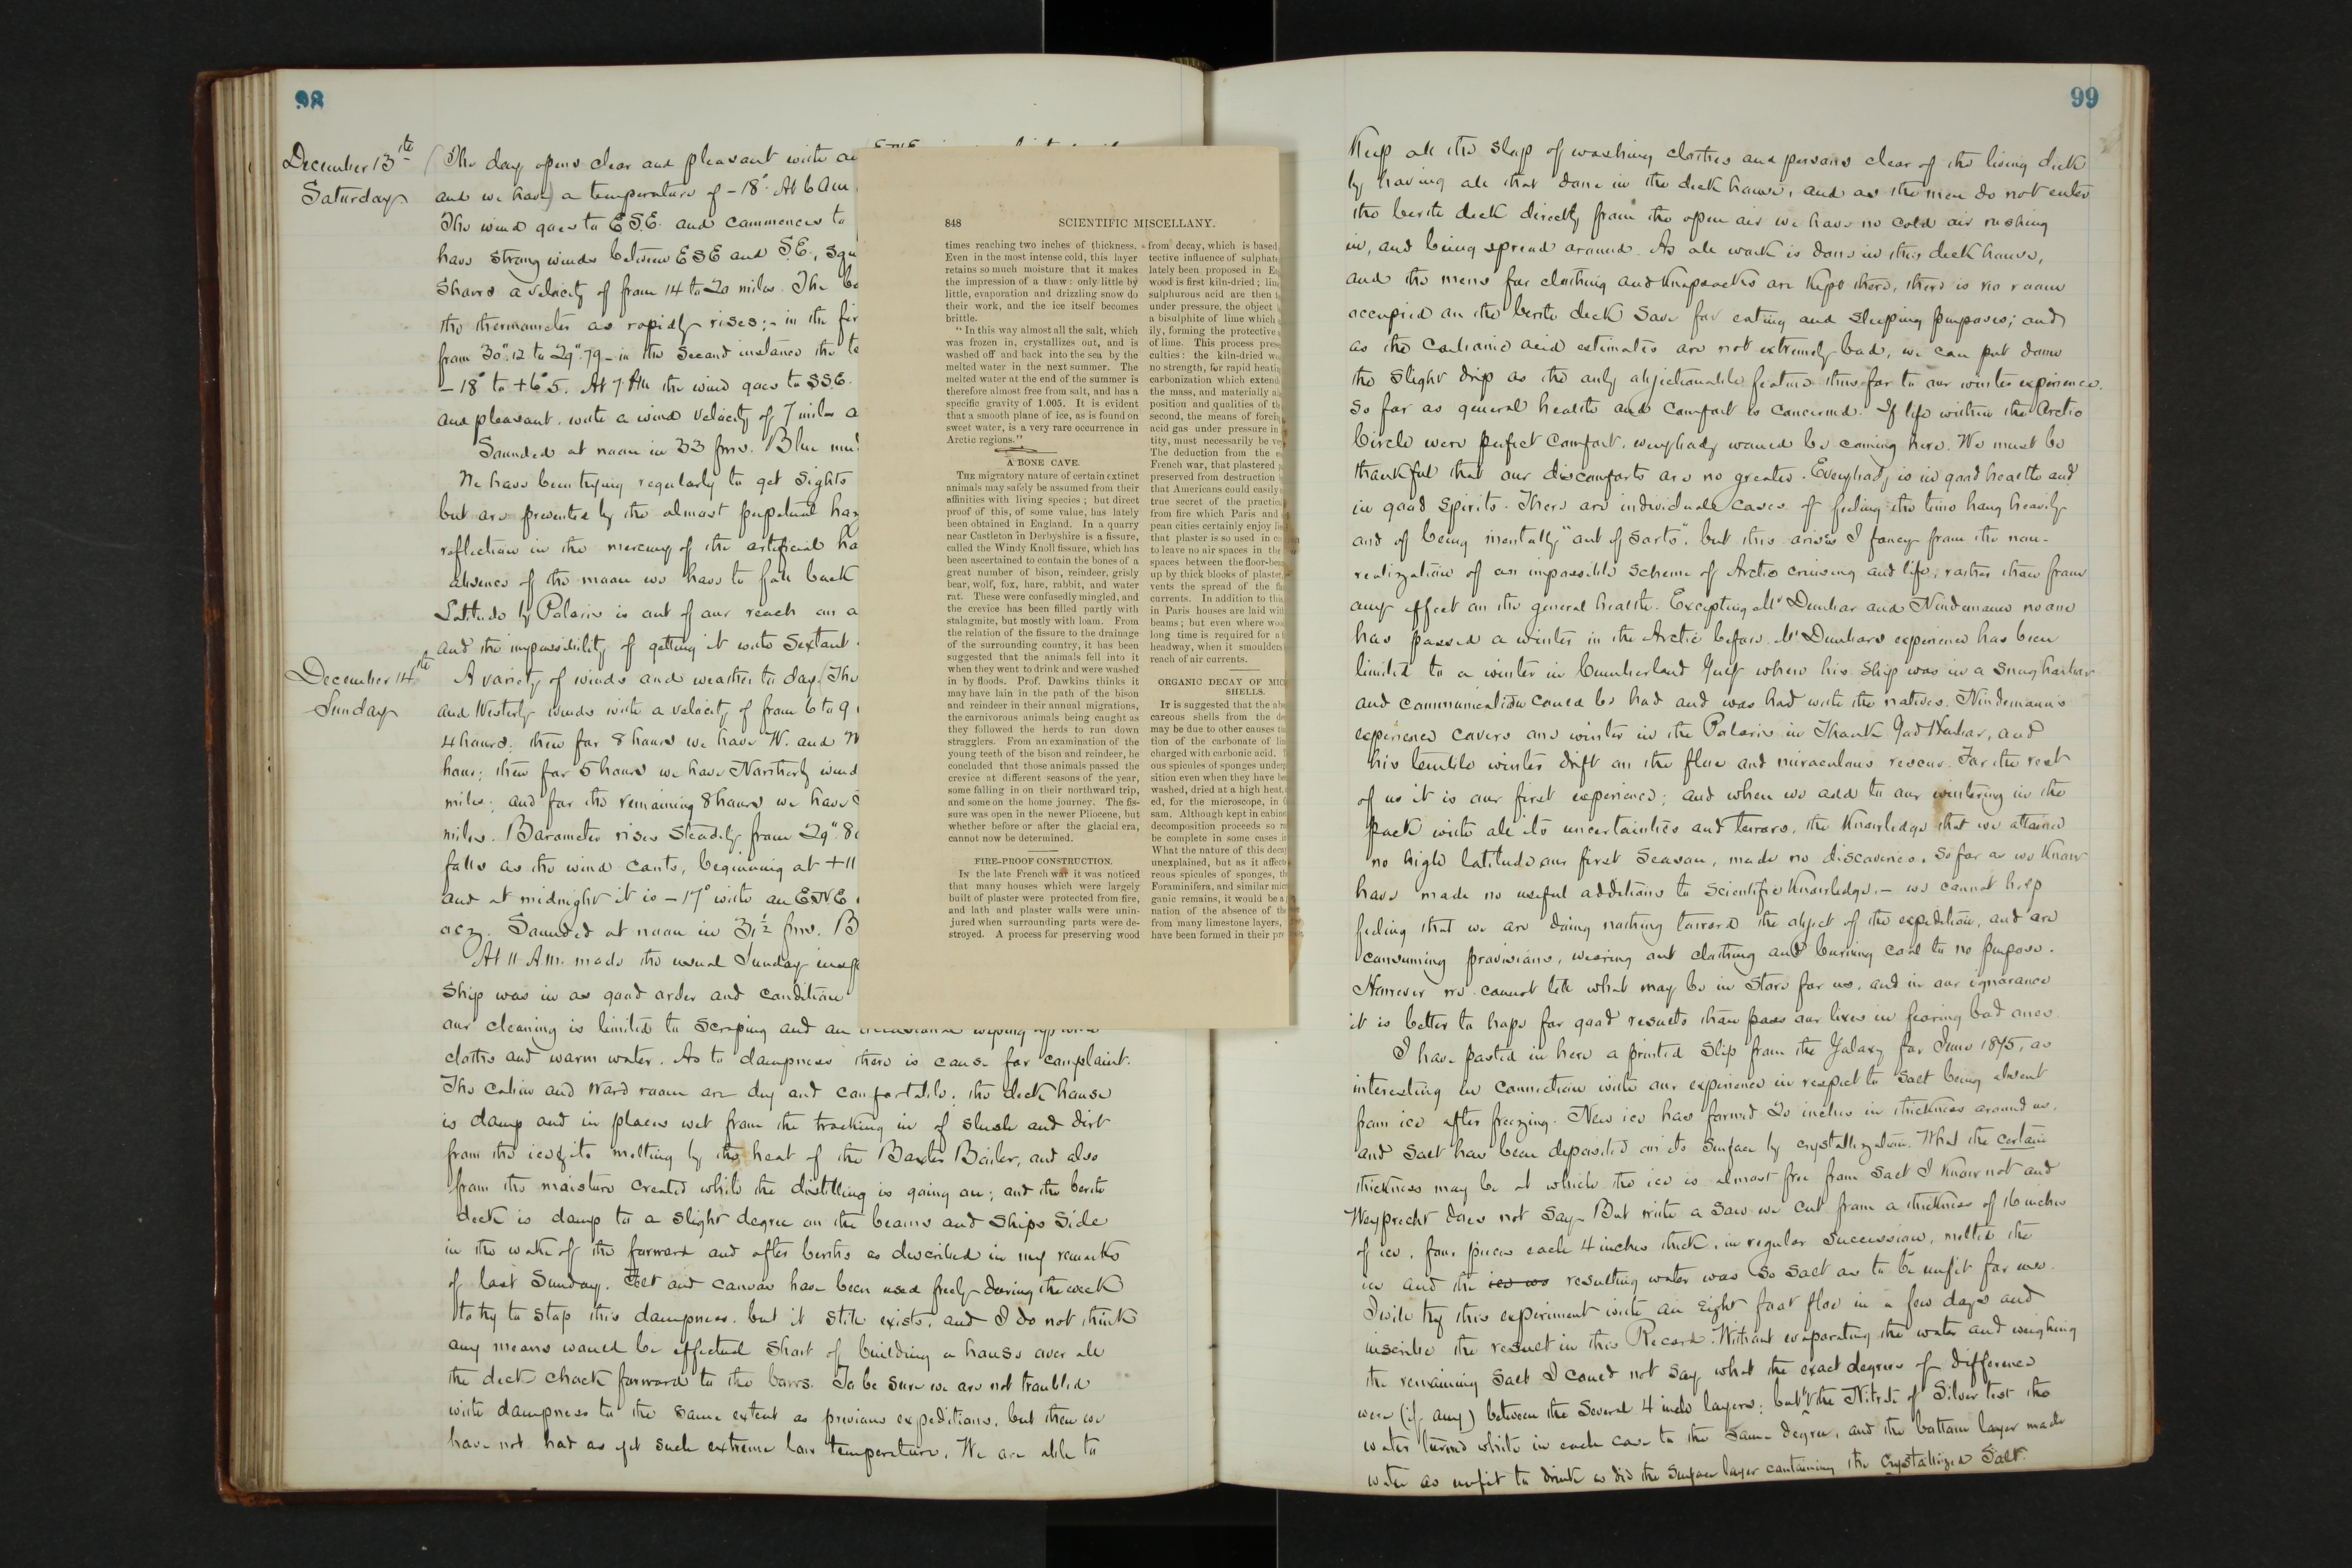 98
December 13th
Saturday
The day opens clear and pleasant with an
and we have) a temperature of -18°. At 6 AM
The wind goes to E.S.E. and commences to
have strong winds between ESE and S.E.,
shows a velocity of from 14 to 20 miles. The
the thermometer as rapidly rises;- in the
from 30".12 to 29".79 - in the second instance the
-18° to +6°.5. At 7 PM the wind goes to SSE.
and pleasant. with a wind velocity of 7 miles
Sounded at noon in 33 fms. Blue
We have been trying regularly to get sights
but are prevented by the almost perpetual
reflection in the mercury of the artificial
absence of the moon we have to fall back
Latitude by Polaris is out of our reach on
and the impossibility of getting it with Sextant
December 14th
Sunday
A variety of winds and weather to day. (The
and Westerly winds with a velocity of from 6 to 9
4 hours; then for 8 hours we have W. and
hour; then for 5 hours we have Northerly
miles; and for the remaining 8 hours we have
miles. Barometer rises steadily from 29".
falls as the wind cants, beginning at +11
and at midnight it is -17° with an ENE
Sounded at noon in 31½ fms.
At 11 A.M. made the usual Sunday
Ship was in as good order and condition
our cleaning is limited to scraping and an occasional wiping up with
cloths and warm water. As to dampness there is cause for complaint.
The cabin and Ward room are dry and comfortable; the deck house
is damp and in places wet from the tracking in of slush and dirt
from the ice & its melting by the heat of the Baxter Boiler, and also
from the moisture created while the distilling is going on; and the berth
deck is damp to a slight degree on the beams and Ships side
in the wake of the forward and after berths as described in my remarks
of last Sunday. Felt and canvas have been used freely during the week
to try to stop this dampness, but it still exists; and I do not think
any means would be effectual short of building a house over all
the deck chock forward to the bows. To be sure we are not troubled
with dampness to the same extent as previous expeditions, but then we
have not had as yet such extreme low temperature. We are able to
848 SCIENTIFIC MISCELLANY.
times reaching two inches of thickness.
Even in the most intense cold, this layer
retains so much moisture that it makes
the impression of a thaw: only little by
little, evaporation and drizzling snow do
their work, and the ice itself becomes
brittle.
"In this way almost all the salt, which
was frozen in, crystallizes out, and is
washed off and back into the sea by the
melted water in the next summer. The
melted water at the end of the summer is
therefore almost free from salt, and has a
specific gravity of 1.005. It is evident
that a smooth plane of ice, as is found on
sweet water, is a very rare occurrence in
Arctic regions."
A BONE CAVE.
THE migratory nature of certain extinct
animals may safely be assumed from their
affinities with living species; but direct
proof of this, of some value, has lately
been obtained in England. In a quarry
near Castleton in Derbyshire is a fissure,
called the Windy Knoll fissure, which has
been ascertained to contain the bones of a
great number of bison, reindeer, grisly
bear, wolf, fox, hare, rabbit, and water
rat. These were confusedly mingled, and
the crevice has been filled partly with
stalagmite, but mostly with loam. From
the relation of the fissure to the drainage
of the surrounding country, it has been
suggested that the animals fell into it
when they went to drink and were washed
in by floods. Prof. Dawkins thinks it
may have lain in the path of the bison
and reindeer in their annual migrations,
the carnivorous animals being caught as
they followed the herds to run down
stragglers. From an examination of the
young teeth of the bison and reindeer, he
concluded that those animals passed the
crevice at different seasons of the year,
some falling in on their northward trip,
and some on the home journey. The fis-
sure was open in the newer Pliocene, but
whether before or after the glacial era,
cannot now be determined.
FIRE-PROOF CONSTRUCTION.
IN the late French war it was noticed
that many houses which were largely
built of plaster were protected from fire,
and lath and plaster walls were unin-
jured when surrounding parts were de-
stroyed. A process for preserving wood
from decay, which is based
tective influence of sulphate
lately been proposed in
wood is first kiln-dried;
sulphurous acid are then
under pressure, the object
a bisulphite of lime which
ily, forming the protective
of lime. This process
culties: the kiln-dried
no strength, for rapid
carbonization which
the mass, and materially
position and qualities of
second, the means of
acid gas under pressure in
tity, must necessarily be
The deduction from the
French war, that plastered
preserved from destruction
that Americans could easily
true secret of the
from fire which Paris and
pean cities certainly enjoy
that plaster is so used in
to leave no air spaces in the
spaces between the
up by thick blocks of plaster,
vents the spread of the
currents. In addition to this
in Paris houses are laid
beams; but even where
long time is required for a
headway, when it smoulders
reach of air currents.
ORGANIC DECAY OF
SHELLS.
IT is suggested that the
careous shells from the
may be due to other causes
tion of the carbonate of
charged with carbonic acid.
ous spicules of sponges
sition even when they have
washed, dried at a high heat,
ed, for the microscope, in
sam. Although kept in
decomposition proceeds so
be complete in some cases
What the nature of this decay
unexplained, but as it
reous spicules of sponges,
Foraminifera, and similar
ganic remains, it would be a
nation of the absence of the
from many limestone layers,
have been formed in their
99
Keep all the slop of washing clothes and persons clear of the living deck
by having all that done in the deck house, and as the men do not enter
the berth deck directly from the open air we have no cold air rushing
in, and being spread around. As all work is done in this deck house,
and the mens fur clothing and knapsacks are kept there, there is no room
occupied on the berth deck save for eating and sleeping purposes; and
as the Carbonic acid estimates are not extremely bad, we can put down
the slight drip as the only objectionable feature thus far to our winter experience.
So far as general health and comfort is concerned. If life within the Arctic
Circle were perfect comfort, everybody would be coming here. We must be
thankful that our discomforts are no greater. Everybody is in good health and
in good spirits. There are individual cases of feeling the time hang heavily
and of being mentally "out of sorts", but this arises I fancy from the non-
realization of an impossible scheme of Arctic cruising and life, rather than from
any effect on the general health. Excepting Mr Dunbar and Nindemann no one
has passed a winter in the Arctic before. Mr Dunbars experience has been
limited to a winter in Cumberland Gulf where his ship was in a snug harbor
and communication could be had and was had with the natives. Nindemann's
experience covers one winter in the Polaris in Thank God Harbor, and
his terrible winter drift on the floe and miraculous rescue. For the rest
of us it is our first experience; and when we add to our wintering in the
pack with all its uncertainties and terrors, the knowledge that we attained
no high latitude our first season, made no discoveries, so far as we know
have made no useful additions to scientific knowledge, - we cannot help
feeling that we are doing nothing toward the object of the expedition, and are
consuming provisions, wearing out clothing and burning coal to no purpose.
However we cannot tell what may be in store for us, and in our ignorance
it is better to hope for good results than pass our lives in fearing bad ones.
I have pasted in here a printed slip from the Galaxy for June 1875, as
interesting in connection with our experience in respect to salt being absent
from ice after freezing. New ice has formed 20 inches in thickness around us,
and salt has been deposited on its surface by crystallization. What the certain
thickness may be at which the ice is almost free from salt I know not and
Weyprecht does not say. But with a saw we cut from a thickness of 16 inches
of ice, four pieces each 4 inches thick, in regular succession, melted the
ice and the ice wa resulting water was so salt as to be unfit for use.
I will try this experiment with an eight foot floe in a few days and
inscribe the result in this Record. Without evaporating the water and weighing
the remaining salt I could not say what the exact degree of difference
were (if any) between the several 4 inch layers; but the Nitrate of Silver test the
water turned white in each case to the same degree, and the bottom layer made
water as unfit to drink as did the surface layer containing the crystallized Salt.